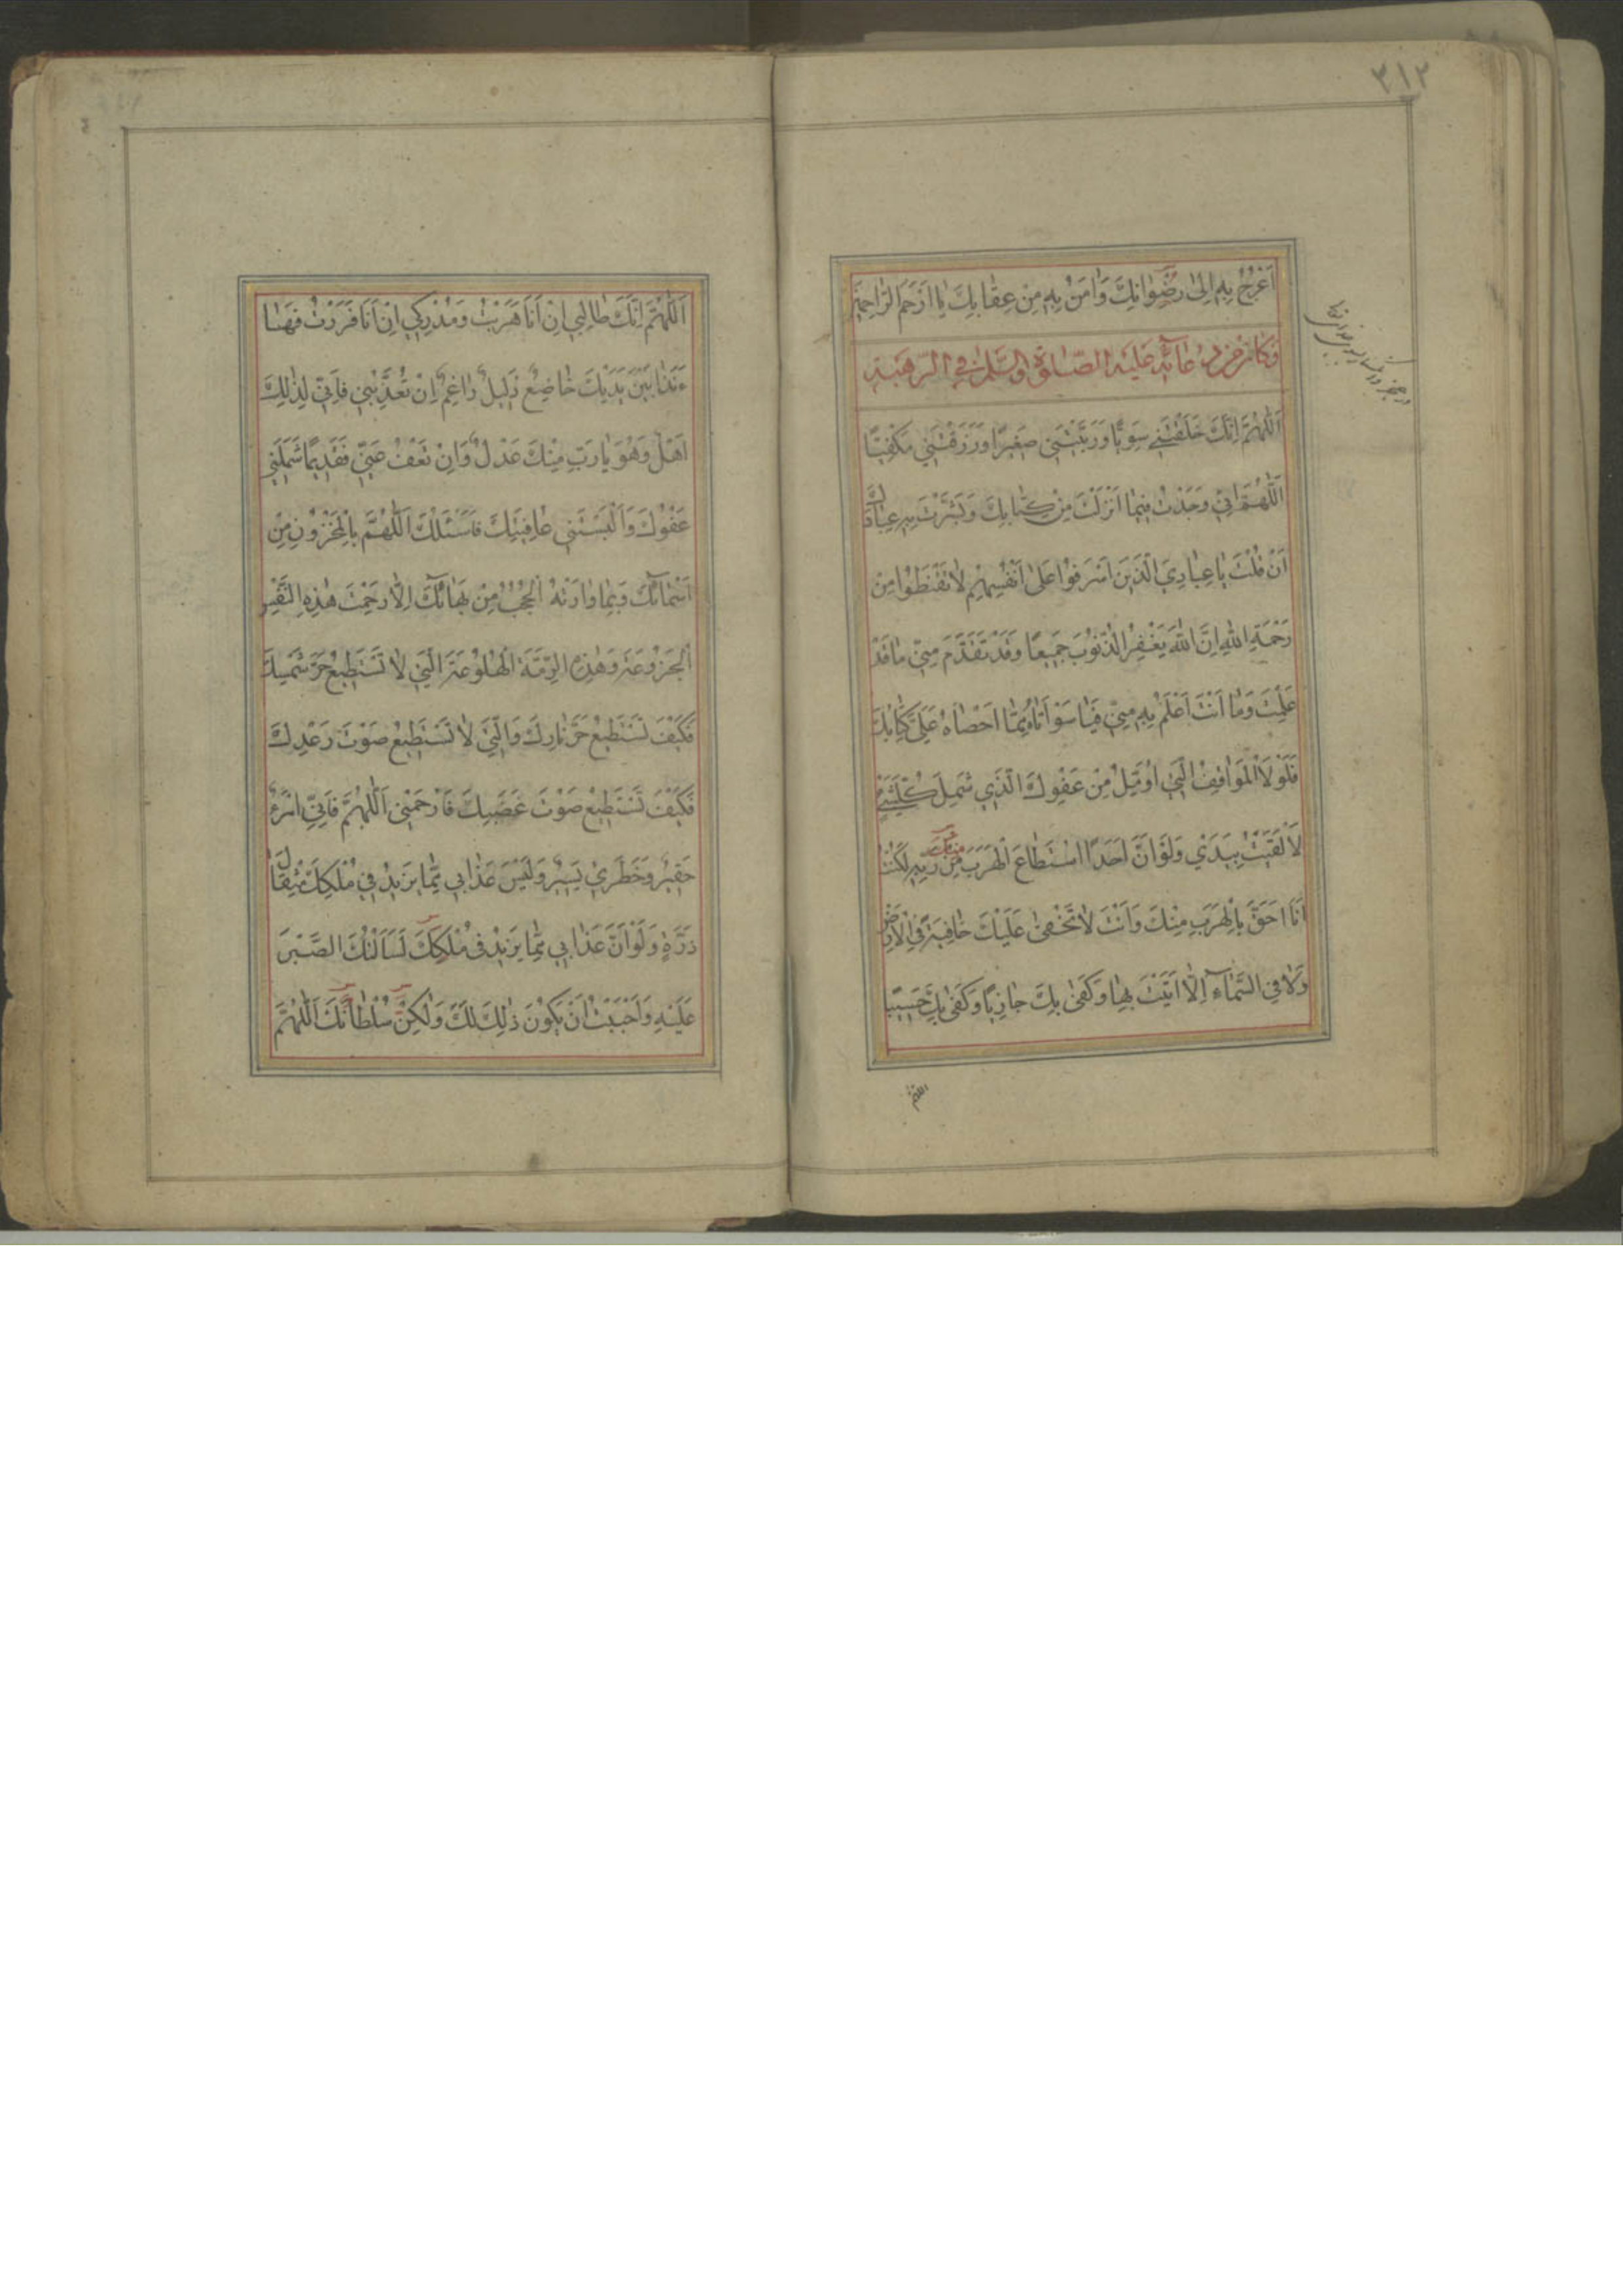 ٣١٢
اَعْرُجُ بِهِ اِلىٰ رِضْوٰانِكَ وَاٰمَنُ بِهِ مِنْ عِقٰابِكَ يٰا اَرْحَمَ الرّٰاحِمينَ
وَكٰانَ مِنْ دُعٰائِهِ عَلَيْهِ الصَّلوٰةُ وَالسَّلٰمُ فِي الرَّهْبَةِ
اَللّٰهُمَّ اِنَّكَ خَلَقْتَني سَوِيًّا وَرَبَّيْتَني صَغيرًا وَرَزَقْتَني مَكْفِيًّا
اَللّٰهُمَّ اِنّي وَجَدْتُ فيمٰا اَنْزَلْتَ مِنْ كِتٰابِكَ وَبَشَّرْتَ بِهِ عِبٰادَكَ
اَنْ قُلْتَ يٰا عِبٰادِيَ الَّذينَ اَسْرَفُوا عَلىٰ اَنْفُسِهِمْ لٰا تَقْنَطُوا مِنْ
رَحْمَةِ اللّٰهِ اِنَّ اللّٰهَ يَغْفِرُ الذُّنُوبَ جَميعًا وَقَدْ تَقَدَّمَ مِنّي مٰا قَدْ
عَلِمْتَ وَمٰا اَنْتَ اَعْلَمُ بِهِ مِنّي فَيٰا سَوْاَتٰاهُ مِمّٰا اَحْصٰاهُ عَلَيَّ كِتٰابُكَ
فَلَوْلَا الْمَوٰاقِفُ الَّتي اُؤَمِّلُ مِنْ عَفْوِكَ الَّذي شَمِلَ كُلَّ شَيْءٍ
لَاَلْقَيْتُ بِيَدي وَلَوْ اَنَّ اَحَدًا اسْتَطٰاعَ الْهَرَبَ مِنْ رَبِّهِ لَكُنْتُ
اَنَا اَحَقَّ بِالْهَرَبِ مِنْكَ وَاَنْتَ لٰا تَخْفىٰ عَلَيْكَ خٰافِيَةٌ فِي الْاَرْضِ
وَلٰا فِي السَّمٰآءِ اِلّٰا اَتَيْتَ بِهٰا وَكَفىٰ بِكَ جٰازِيًا وَكَفىٰ بِكَ حَسيبًا
اللهم
اَللّٰهُمَّ اِنَّكَ طٰالِبي اِنْ اَنَا هَرَبْتُ وَمُدْرِكي اِنْ اَنَا فَرَرْتُ فَهٰا
ءَنَذٰا بَيْنَ يَدَيْكَ خٰاضِعٌ ذَليلٌ رٰاغِمٌ اِنْ تُعَذِّبْني فَاِنّي لِذٰلِكَ
اَهْلٌ وَهُوَ يٰا رَبِّ مِنْكَ عَدْلٌ وَاِنْ تَعْفُ عَنّي فَقَديمًا شَمَلَني
عَفْوُكَ وَاَلْبَسْتَني عٰافِيَتَكَ فَاَسْئَلُكَ اَللّٰهُمَّ بِالْمَخْزُونِ مِنْ
اَسْمٰائِكَ وَبِمٰا وٰارَتْهُ الْحُجُبُ مِنْ بَهٰائِكَ اِلّٰا رَحِمْتَ هٰذِهِ النَّفْسَ
الْجَزُوعَةَ وَهٰذِهِ الرِّمَّةَ الْهَلُوعَةَ الَّتي لٰا تَسْتَطيعُ حَرَّ شَمْسِكَ
فَكَيْفَ تَسْتَطيعُ حَرَّ نٰارِكَ وَالَّتي لٰا تَسْتَطيعُ صَوْتَ رَعْدِكَ
فَكَيْفَ تَسْتَطيعُ صَوْتَ غَضَبِكَ فَارْحَمْنِي اَللّٰهُمَّ فَاِنِّي امْرُءٌ
حَقيرٌ وَخَطَري يَسيرٌ وَلَيْسَ عَذٰابي مِمّٰا يَزيدُ في مُلْكِكَ مِثْقٰالَ
ذَرَّةٍ وَلَوْ اَنَّ عَذٰابي مِمّٰا يَزيدُ في مُلْكِكَ لَسَاَلْتُكَ الصَّبْرَ
عَلَيْهِ وَاَحْبَبْتُ اَنْ يَكُونَ ذٰلِكَ لَكَ وَلٰكِنْ سُلْطٰانُكَ اَللّٰهُمَّ